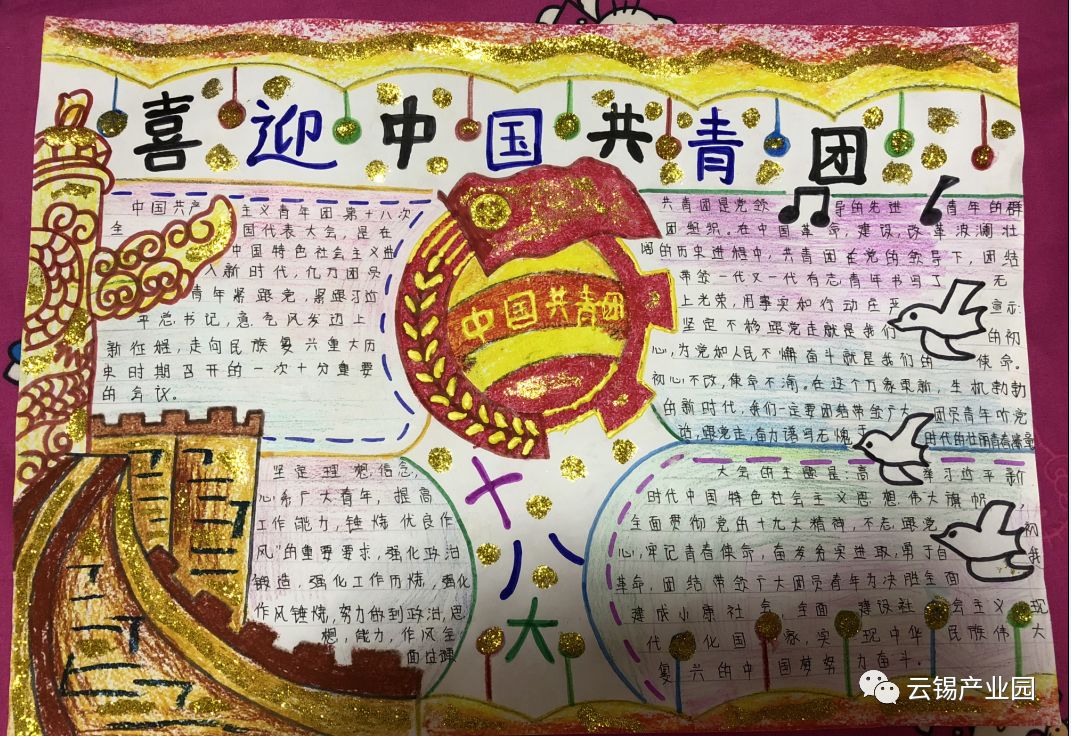 喜迎中国共青团
中国共产主义青年团第十八次
全国代表大会，是在
中国特色社会主义进
入新时代，亿万团员
青年紧跟党，紧跟习近
平总书记，意气风发迈上
新征程，走向民族复兴重大历
史时期召开的一次十分重要
的会议。
共青团是党领导的先进青年的群
团组织。在中国革命，建设，改革波澜壮
阔的历史进程中，共青团在党的领导下，团结
带领一代又一代有志青年书写了无
上光荣，用事实和行动在严宣示:
坚定不移跟党走就是我们的初
心，为党和人民不懈奋斗就是我们的使命。
初心不改，使命不渝。在这个万象更新，生机勃勃
的新时代，我们一定要团结带领广大团员青年听党
话，跟党走，奋力谱写无愧于时代的壮丽青春篇章
中国共青团
十八大
坚定理想信念，
心系广大青年，提高
工作能力，锤炼优良作
风"的重要要求，强化政治
锻造，强化工作历炼，强化
作风锤炼，努力做到政治，思
想，能力，作风全
面过硬
大会的主题是：高举习近平新
时代中国特色社会主义思想伟大旗帜，
全面贯彻党的十九大精神，不忘跟党初
心，牢记青春使命，奋发务实进取，勇于自我
革命，团结带领广大团员青年为决胜全面
建成小康社会全面建设社会主义现
代化国家，实现中华民族伟大
复兴的中国梦努力奋斗。
云锡产业园